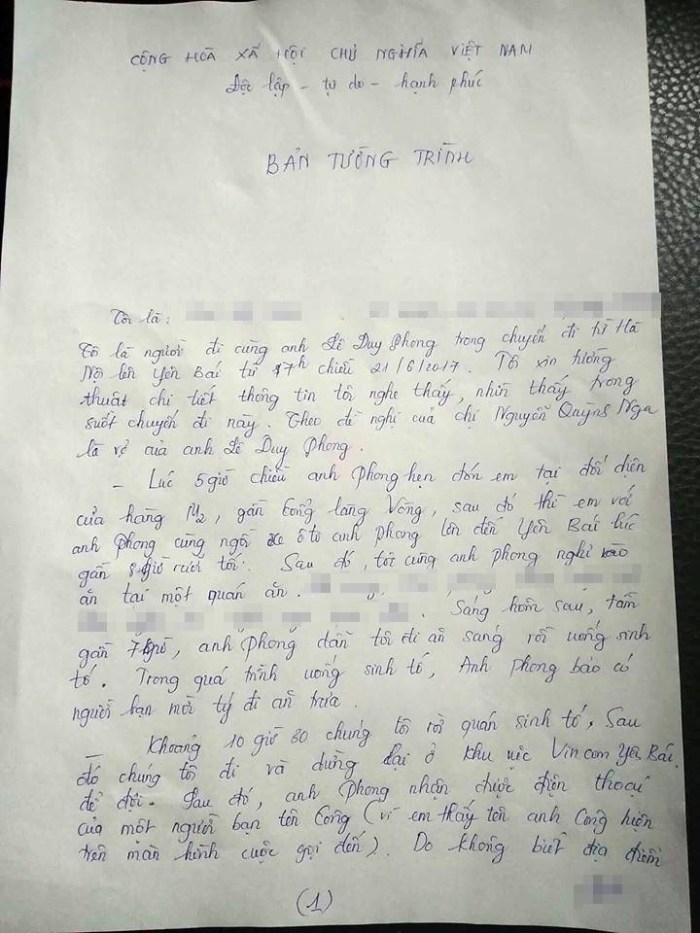 CỘNG HÒA XÃ HỘI CHỦ NGHĨA VIỆT NAM
Độc lập - tự do - hạnh phúc
BẢN TƯỜNG TRÌNH
Tôi là:
Tôi là người đi cùng anh Lê Duy Phong trong chuyến đi từ Hà
Nội lên Yên Bái từ 17h chiều 21/6/2017. Tôi xin tường
thuật chi tiết thông tin tôi nghe thấy, nhìn thấy trong
suốt chuyến đi này. Theo đề nghị của chị Nguyễn Quỳnh Nga
là vợ của anh Lê Duy Phong.
- Lúc 5 giờ chiều anh Phong hẹn đón em tại đối diện
cửa hàng M2, gần Cổng làng Vòng, sau đó thì em với
anh Phong cùng ngồi xe ô tô anh Phong lên đến Yên Bái lúc
gần giờ rưỡi tối. Sau đó, tôi cùng anh Phong nghỉ vào
ăn tại một quán ăn.
. Sáng hôm sau, tầm
gần 7 giờ, anh Phong dẫn tôi đi ăn sáng rồi uống sinh
tố. Trong quá trình uống sinh tố, Anh Phong bảo có
người bạn mời tý đi ăn trưa.
- Khoảng 10 giờ 30 chúng tôi rời quán sinh tố, Sau
đó chúng tôi đi và dừng lại ở khu vực Vincom Yên Bái.
để đợi. Sau đó, anh Phong nhận được điện thoại
của một người bạn tên Công (vì em thấy tên anh Công hiện
trên màn hình cuộc gọi đến). Do không biết địa điểm
(1)